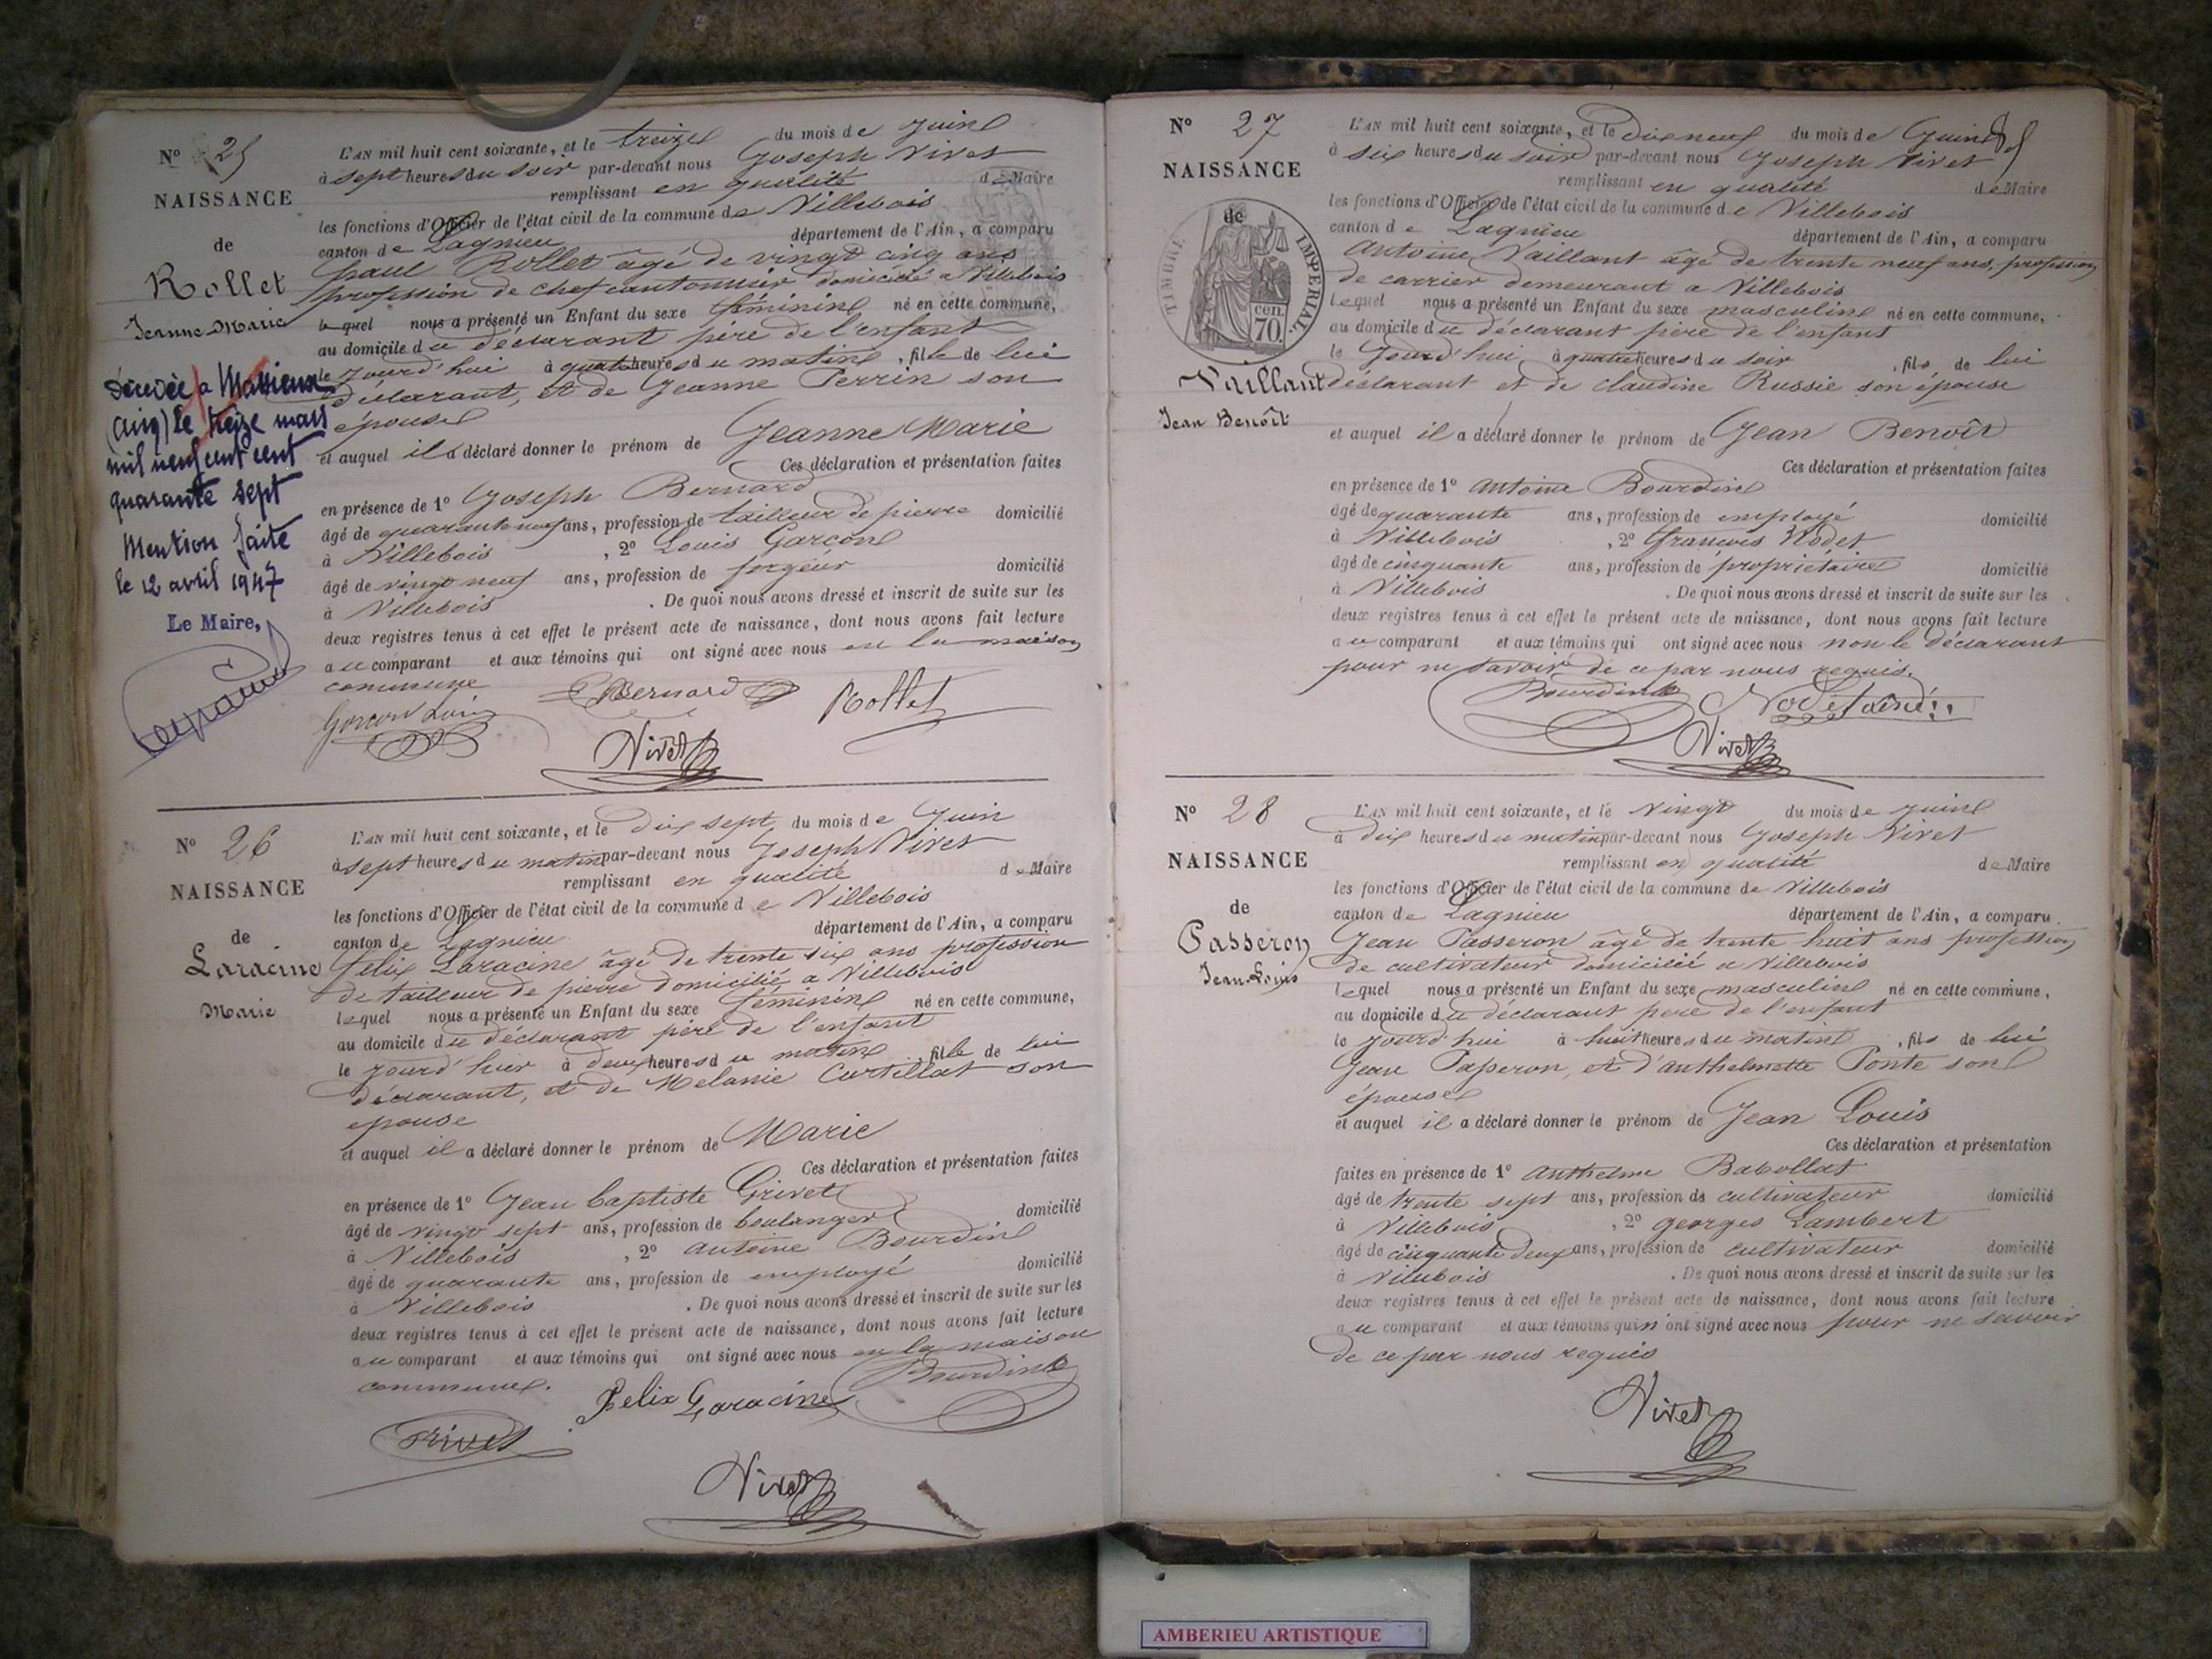 N° 25
NAISSANCE
de
Rollet
Jeanne-Marie
Décédée à Massieux
(Ain) le treize mars
mil neuf cent cent
quarante sept
Mention faite
le 12 avril 1947
Le Maire,
L'AN mil huit cent soixante, et le treize du mois de Juin
à sept heures du soir par-devant nous Joseph Vivet
remplissant en qualité de Maire
les fonctions d'Officier de l'état civil de la commune de Villebois
canton de Lagnieu département de l'Ain, a comparu
paul Rollet âgé de vingt cinq ans
profession de chef cantonnier domicilié a Villebois
lequel nous a présenté un Enfant du sexe féminin né en cette commune,
au domicile du déclarant père de l'enfant
le jourd'hui à quatre heures du matin, fille de lui
déclarant, et de Jeanne Perrin son
épouse
et auquel il a déclaré donner le prénom de Jeanne Marie
Ces déclaration et présentation faites
en présence de 1° Joseph Bernard
âgé de quarante neuf ans, profession de tailleur de pierre domicilié
à Villebois, 2° Louis Garcon
âgé de vingt neuf ans, profession de forgeur domicilié
à Villebois. De quoi nous avons dressé et inscrit de suite sur les
deux registres tenus à cet effet le présent acte de naissance, dont nous avons fait lecture
au comparant et aux témoins qui ont signé avec nous en la maison
commune
Bernard Rollet
Garcon Louis
Vivet
N° 26
NAISSANCE
de
Laracine
Marie
L'AN mil huit cent soixante, et le dix sept du mois de Juin
à sept heures du matin par-devant nous Joseph Vivet
remplissant en qualité de Maire
les fonctions d'Officier de l'état civil de la commune de Villebois
canton de Lagnieu département de l'Ain, a comparu
felix Laracine âgé de trente six ans profession
de tailleur de pierre domicilié a Villebois
lequel nous a présenté un Enfant du sexe féminin né en cette commune,
au domicile du déclarant père de l'enfant
le jourd'hui à deux heures du matin, fille de lui
déclarant, et de Melanie Curtillat son
épouse
et auquel il a déclaré donner le prénom de Marie
Ces déclaration et présentation faites
en présence de 1° Jean baptiste Grivet
âgé de vingt sept ans, profession de boulanger domicilié
à Villebois, 2° antoine Bourdin
âgé de quarante ans, profession de employé domicilié
à Villebois. De quoi nous avons dressé et inscrit de suite sur les
deux registres tenus à cet effet le présent acte de naissance, dont nous avons fait lecture
au comparant et aux témoins qui ont signé avec nous en la maison
commune.
Felix Laracine Bourdin
Grivet
Vivet
N° 27
NAISSANCE
de
TIMBRE IMPERIAL
70 cen.
Vaillant
Jean Benoît
L'AN mil huit cent soixante, et le dix neuf du mois de Juin
à six heures du soir par-devant nous Joseph Vivet
remplissant en qualité de Maire
les fonctions d'Officier de l'état civil de la commune de Villebois
canton de Lagnieu département de l'Ain, a comparu
antoine Vaillant âgé de trente neuf ans, profession
de carrier demeurant a Villebois
lequel nous a présenté un Enfant du sexe masculin né en cette commune,
au domicile du déclarant père de l'enfant
le jourd'hui à quatre heures du soir, fils de lui
déclarant et de claudine Russie son épouse
et auquel il a déclaré donner le prénom de Jean Benoît
Ces déclaration et présentation faites
en présence de 1° antoine Bourdin
âgé de quarante ans, profession de employé domicilié
à Villebois, 2° francois Nodet
âgé de cinquante ans, profession de propriétaire domicilié
à Villebois. De quoi nous avons dressé et inscrit de suite sur les
deux registres tenus à cet effet le présent acte de naissance, dont nous avons fait lecture
au comparant et aux témoins qui ont signé avec nous non le déclarant
pour ne savoir de ce par nous requis.
Bourdin Nodet ainé
Vivet
N° 28
NAISSANCE
de
Passeron
Jean-Louis
L'AN mil huit cent soixante, et le vingt du mois de juin
à dix heures du matin par-devant nous Joseph Vivet
remplissant en qualité de Maire
les fonctions d'Officier de l'état civil de la commune de Villebois
canton de Lagnieu département de l'Ain, a comparu
Jean Passeron âgé de trente huit ans profession
de cultivateur domicilié a Villebois
lequel nous a présenté un Enfant du sexe masculin né en cette commune,
au domicile du déclarant père de l'enfant
le jourd'hui à huit heures du matin, fils de lui
Jean Passeron, et d'anthelmette Ponte son
épouse
et auquel il a déclaré donner le prénom de Jean Louis
Ces déclaration et présentation
faites en présence de 1° anthelme Babollat
âgé de trente sept ans, profession de cultivateur domicilié
à Villebois, 2° georges Lambert
âgé de cinquante deux ans, profession de cultivateur domicilié
à Villebois. De quoi nous avons dressé et inscrit de suite sur les
deux registres tenus à cet effet le présent acte de naissance, dont nous avons fait lecture
au comparant et aux témoins qui n'ont signé avec nous pour ne savoir
de ce par nous requis
Vivet
AMBERIEU ARTISTIQUE